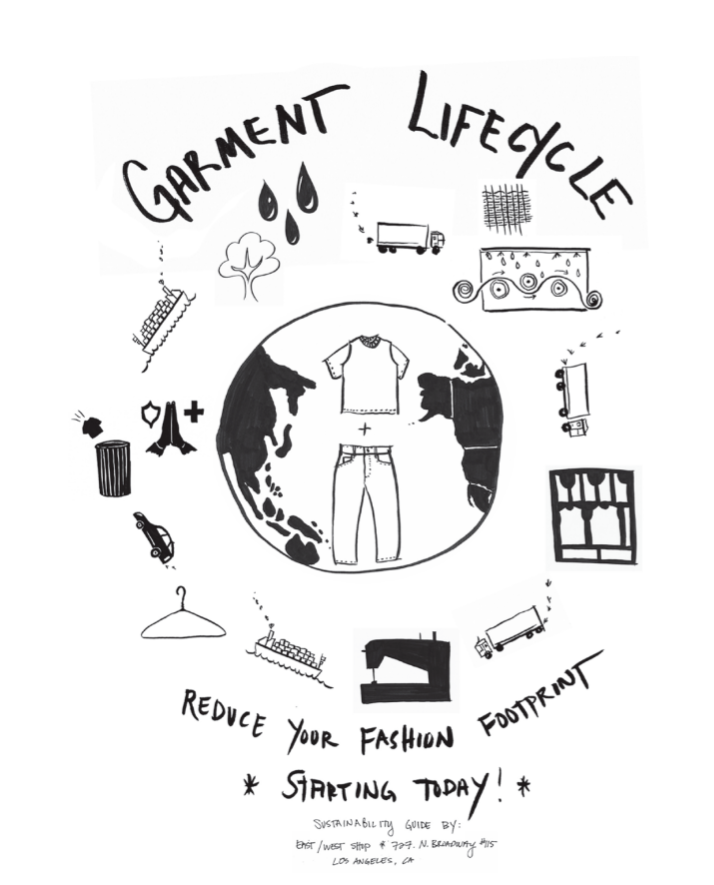 GARMENT LIFECYCLE
REDUCE YOUR FASHION FOOTPRINT
* STARTING TODAY! *
SUSTAINABILITY GUIDE BY:
EAST/WEST SHOP * 727. N. BROADWAY #115
LOS ANGELES, CA